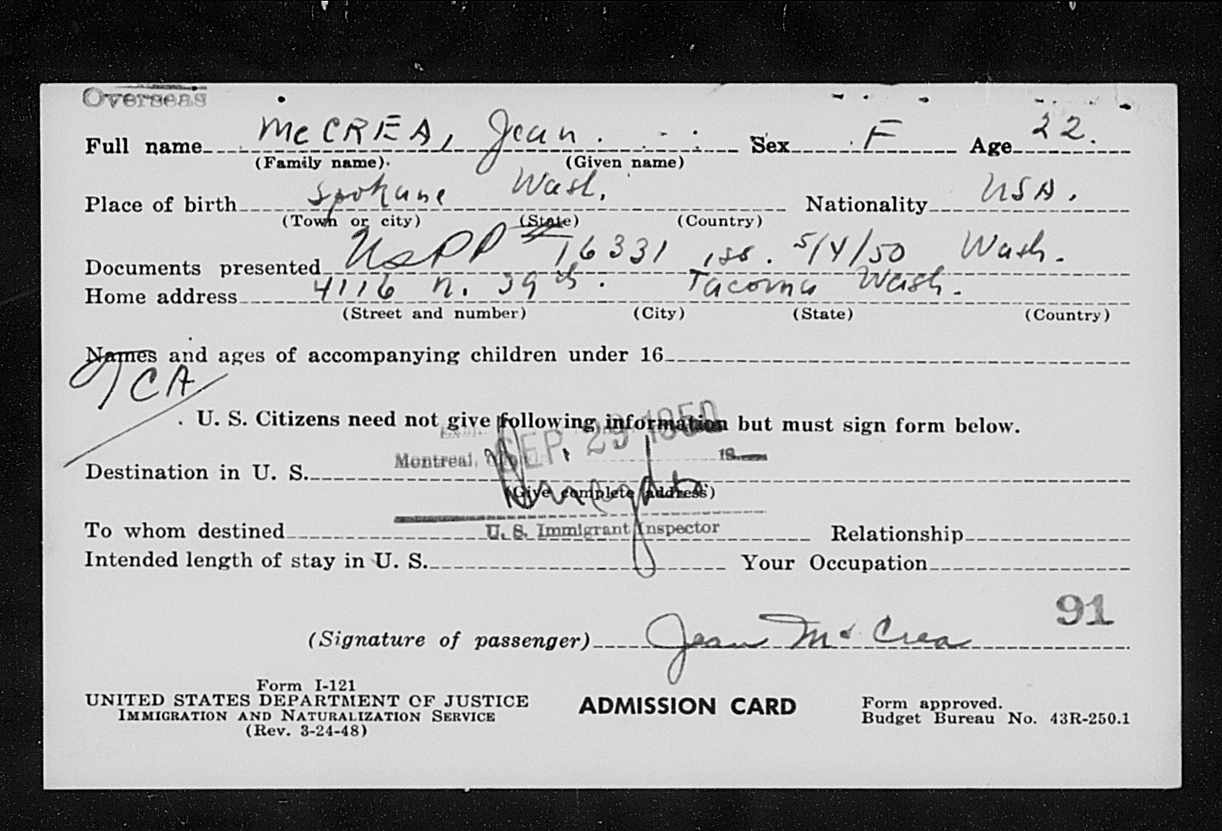 Overseas
Full name McCREA, Jean. Sex F Age 22.
(Family name). (Given name)
Place of birth Spokane Wash. Nationality USA.
(Town or city) (State) (Country)
Documents presented UsPP 16331 iss. 5/4/50 Wash.
Home address 4116 N. 39th. Tacoma Wash.
(Street and number) (City) (State) (Country)
Names and ages of accompanying children under 16
TCA
U. S. Citizens need not give following information but must sign form below.
SEP. 29 1950
Montreal, 19
Destination in U. S.
(Give complete address)
To whom destined U. S. Immigrant Inspector Relationship
Intended length of stay in U. S. Your Occupation
91
(Signature of passenger) Jean McCrea
Form I-121
UNITED STATES DEPARTMENT OF JUSTICE ADMISSION CARD Form approved.
IMMIGRATION AND NATURALIZATION SERVICE Budget Bureau No. 43R-250.1
(Rev. 3-24-48)